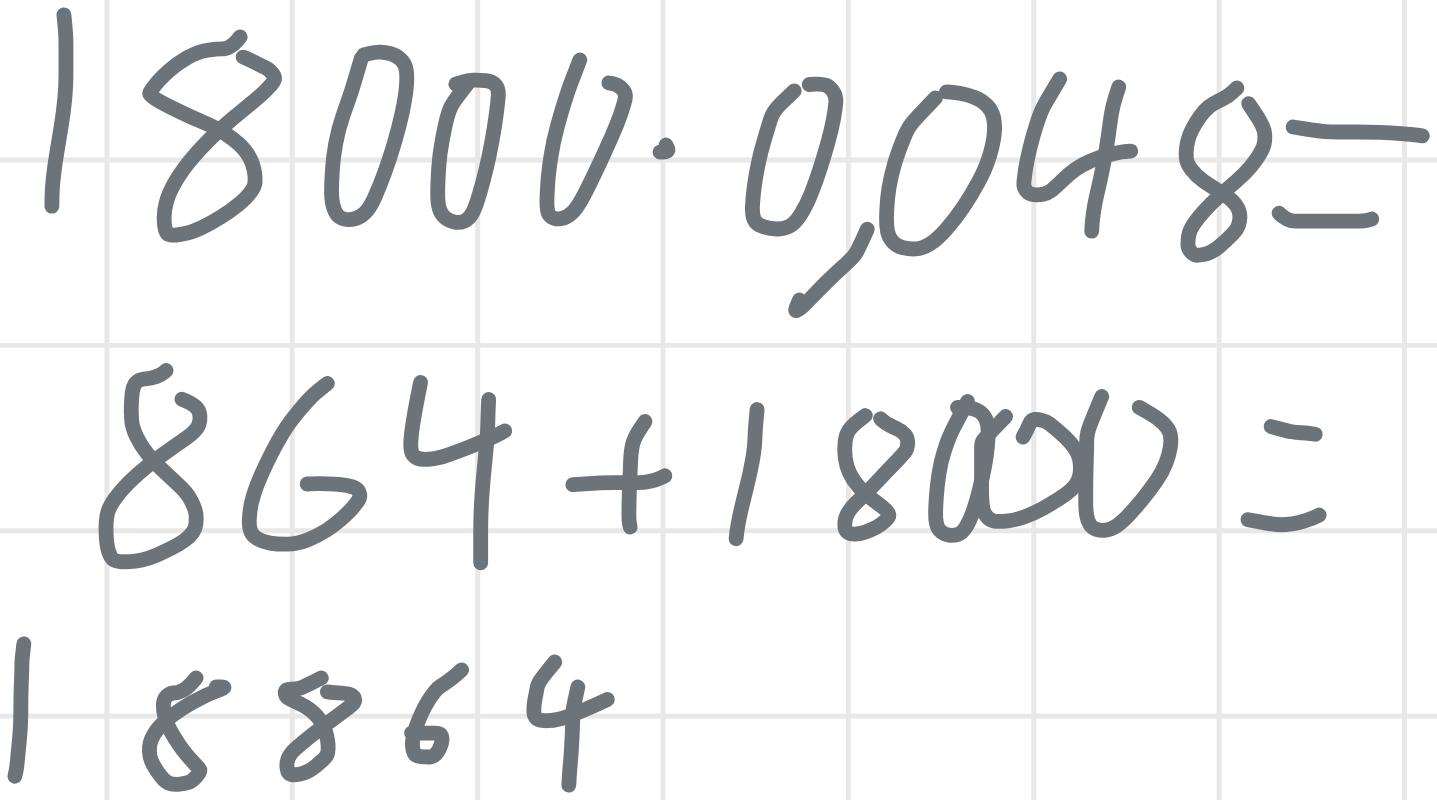 18000·0,048=
864+18000=
18864